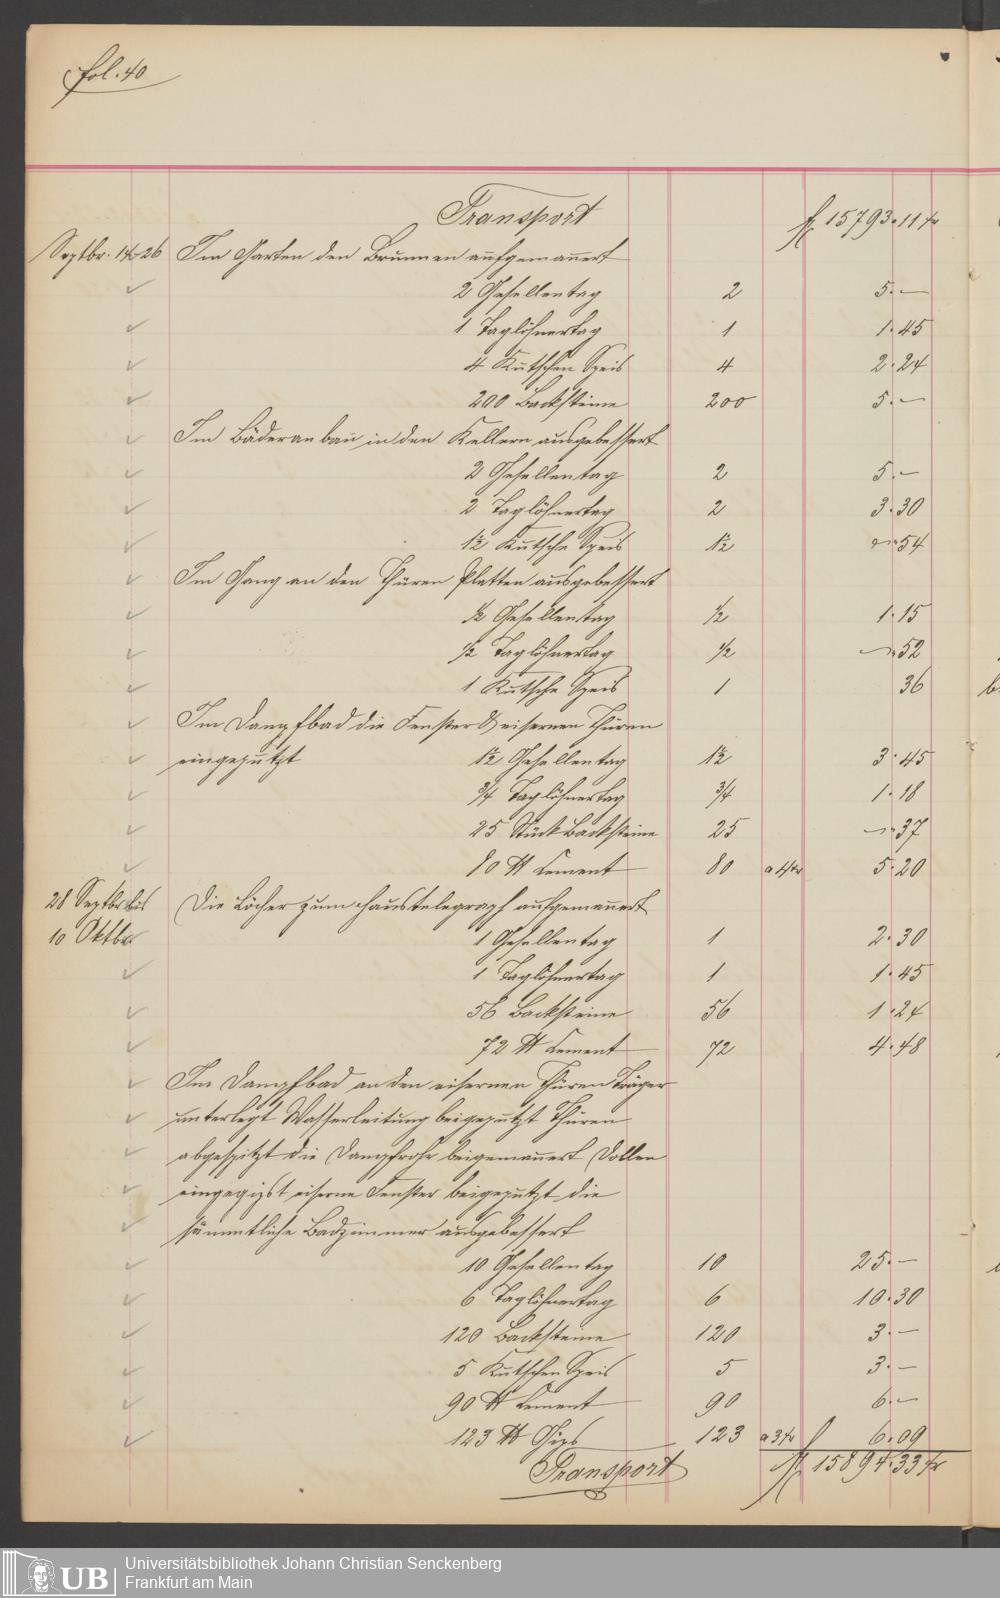 fol. 40
Transport fl 15793.11 kr
Septbr. 14-26 Im Garten den Brunnen aufgemauert
2 Gesellentag 2 5.—
1 Taglöhnertag 1 1.45
4 Kutschen Speis 4 2.24
200 Backsteine 200 5.—
Im Bäderanbau in den Kellern ausgebessert
2 Gesellentag 2 5.—
2 Taglöhnertag 2 3.30
1½ Kutsche Speis 1½ —.54
Im Gang an den Thüren Platten ausgebessert
½ Gesellentag ½ 1.15
½ Taglöhnertag ½ —.52
1 Kutsche Speis 1 36
Im Dampfbad die Fenster & eisernen Thüren
eingeputzt 1½ Gesellentag 1½ 3.45
¾ Taglöhnertag ¾ 1.18
25 Stück Backsteine 25 —.37
80 ℔ Cement 80 a 4 kr 5.20
28 Septbr bis Die Löcher zum Haustelegraph aufgemauert
10 Oktbr. 1 Gesellentag 1 2.30
1 Taglöhnertag 1 1.45
56 Backsteine 56 1.24
72 ℔ Cement 72 4.48
Im Dampfbad an den eisernen Thüren Träger
unterlegt Wasserleitung beigeputzt Thüren
abgespitzt die Dampfrohr beigemauert Dollen
eingegipst eiserne Fenster beigeputzt die
sämmtliche Badzimmer ausgebessert
10 Gesellentag 10 25.—
6 Taglöhnertag 6 10.30
120 Backsteine 120 3.—
5 Kutschen Speis 5 3.—
90 ℔ Cement 90 6.—
123 ℔ Gips 123 a 3 kr 6.09
Transport fl 15894.33 kr
UB Universitätsbibliothek Johann Christian Senckenberg
Frankfurt am Main